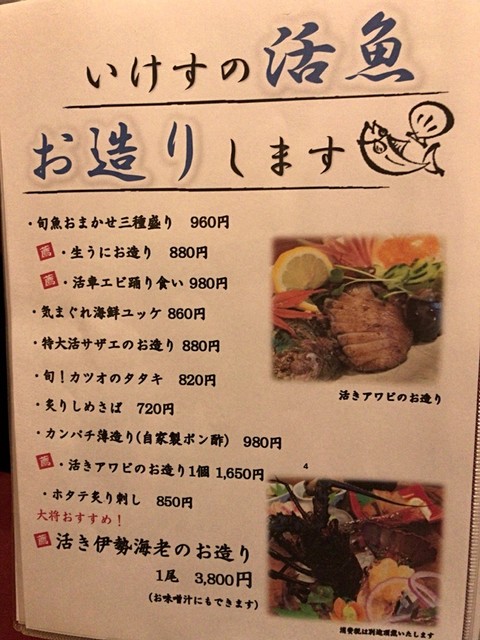 いけすの活魚
お造りします
・旬魚おまかせ三種盛り 960円
・生うにお造り 880円
・活車エビ踊り食い 980円
・気まぐれ海鮮ユッケ 860円
・特大活サザエのお造り 880円
・旬!カツオのタタキ 820円
・炙りしめさば 720円
・カンパチ薄造り(自家製ポン酢) 980円
・活きアワビのお造り1個 1,650円
・ホタテ炙り刺し 850円
大将おすすめ!
活き伊勢海老のお造り
1尾 3,800円
(お味噌汁にもできます)
活きアワビのお造り
4
消費税は別途頂戴いたします